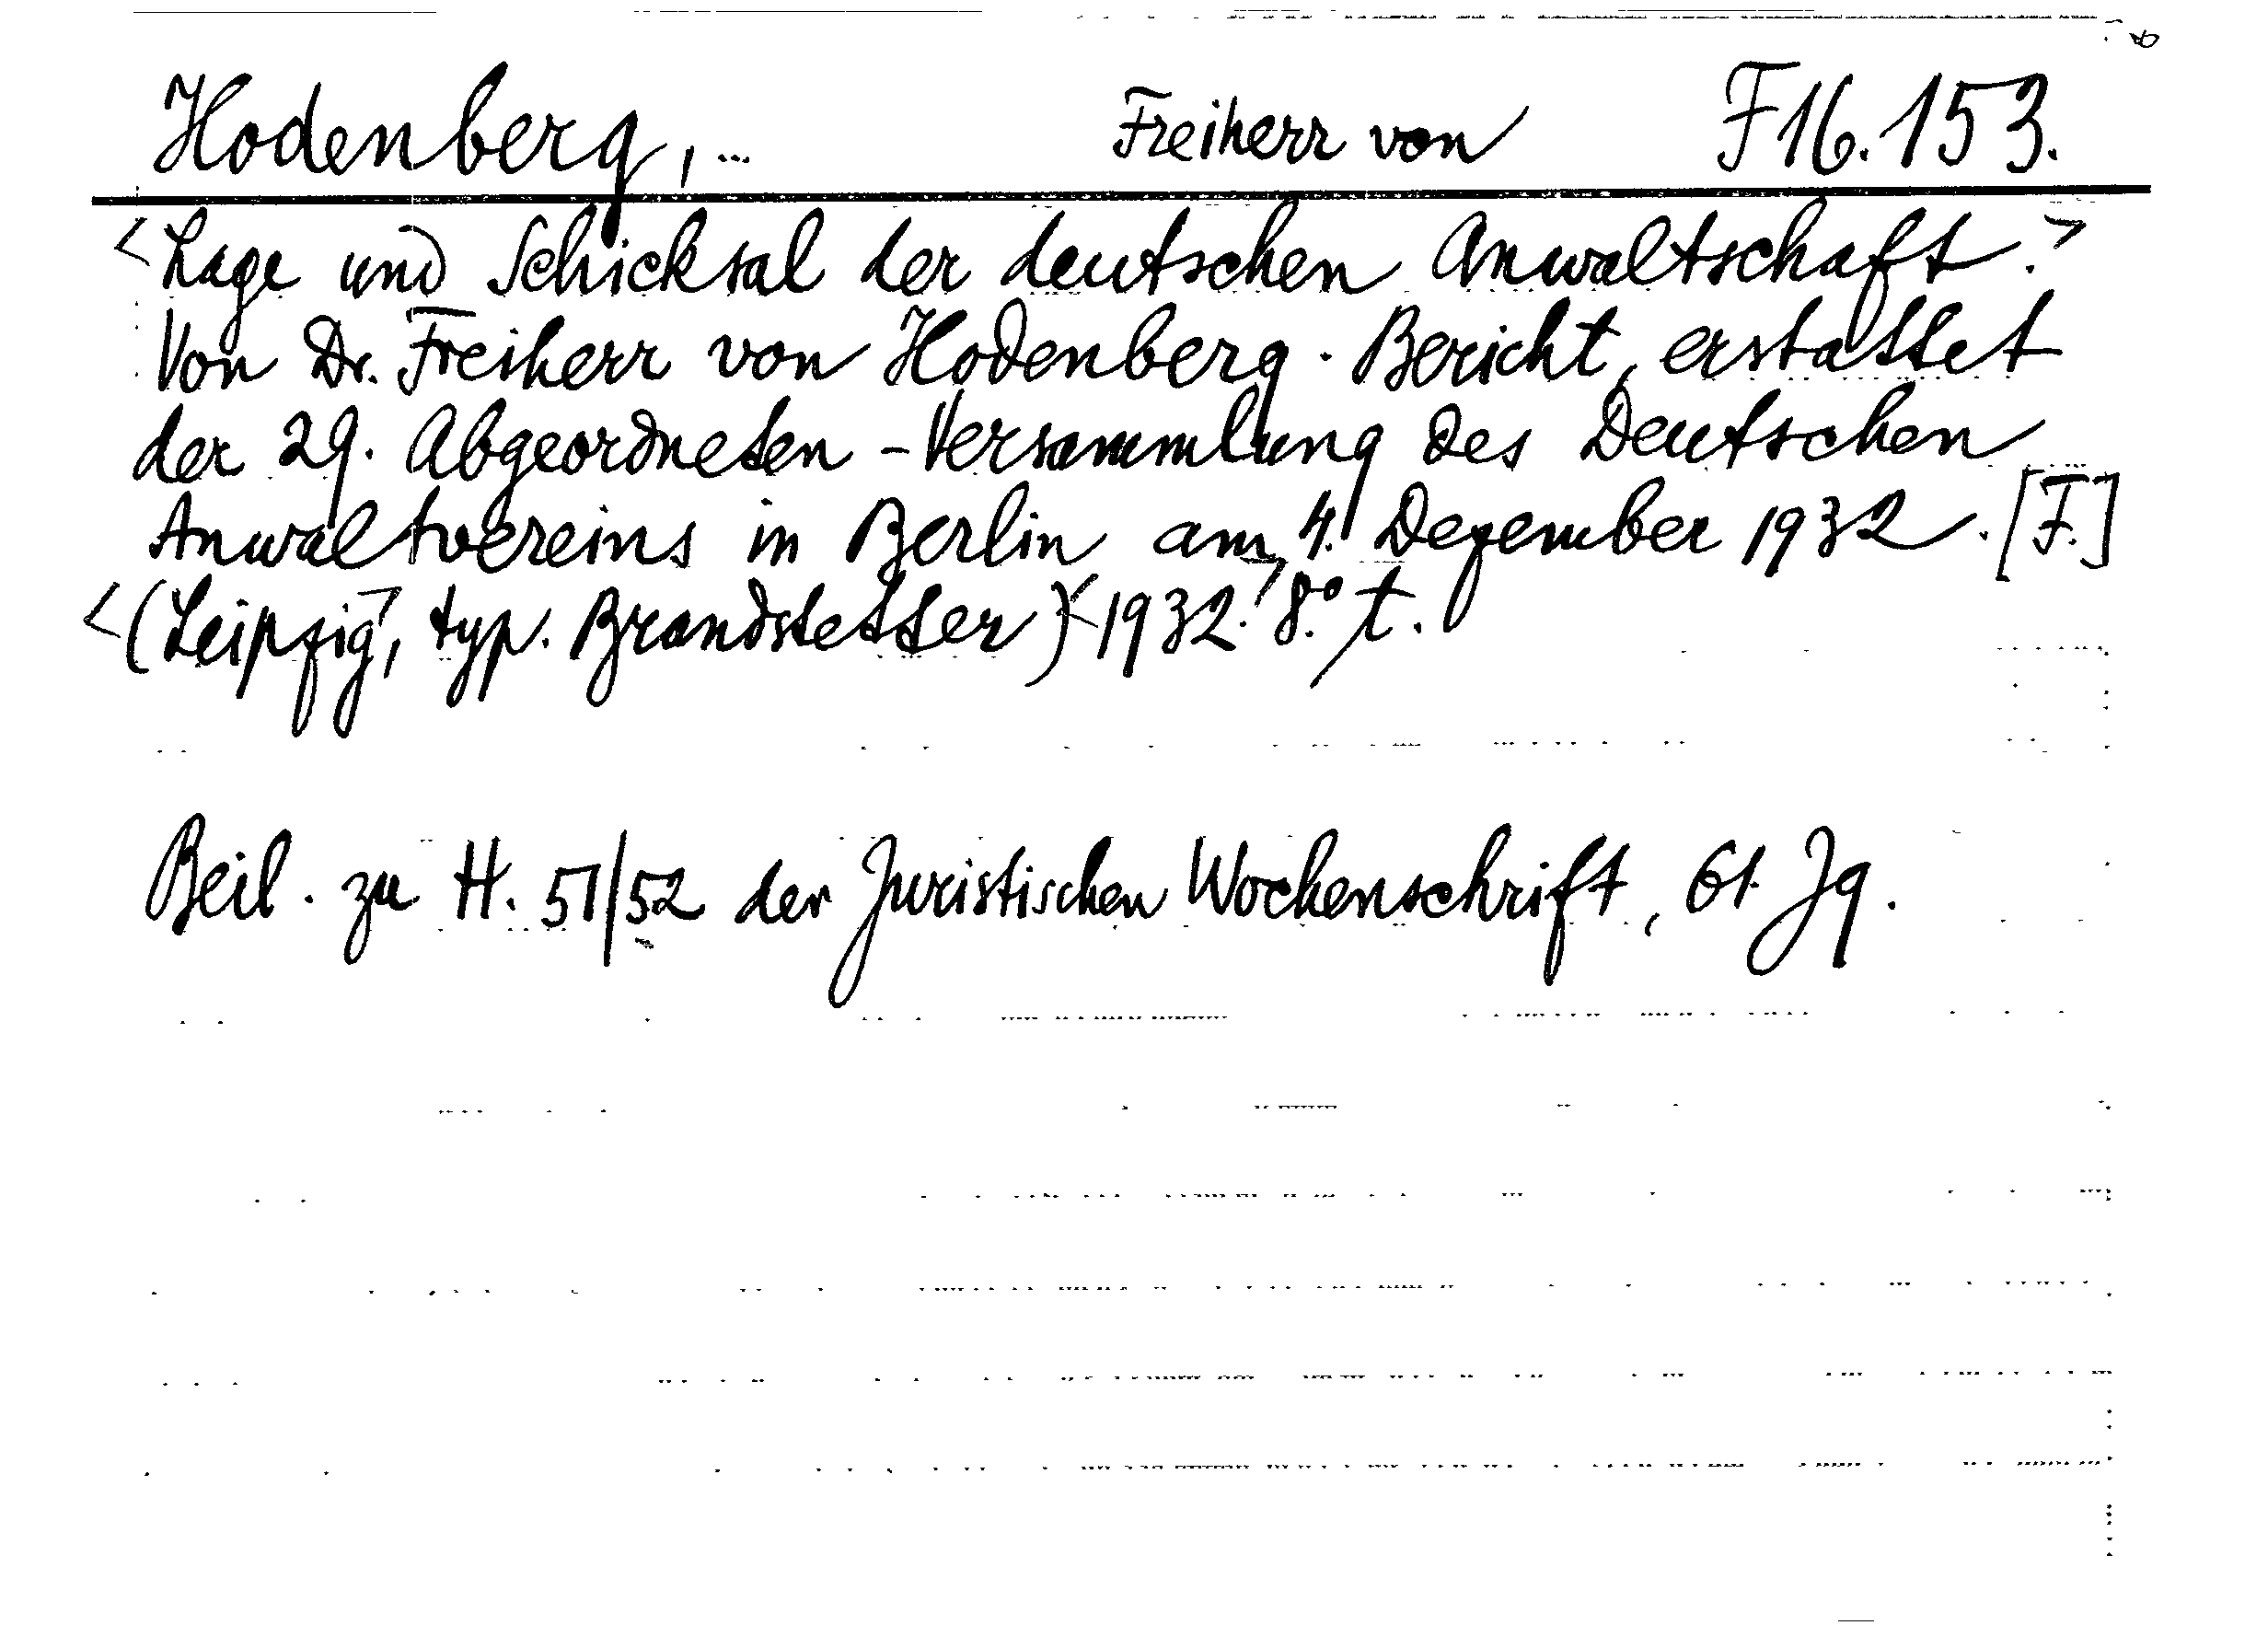 Hodenberg, ... Freiherr von F16.153.
<Lage und Schicksal der deutschen Anwaltschaft.>
Von Dr. Freiherr von Hodenberg. Bericht, erstattet
der 29. Abgeordneten-Versammlung des Deutschen
Anwaltvereins in Berlin am 4. Dezember 1932. [F.]
<(Leipzig>, typ. Brandstetter) <1932.> 8.° t.
Beil. zu H. 51/52 der Juristischen Wochenschrift, 61. Jg.